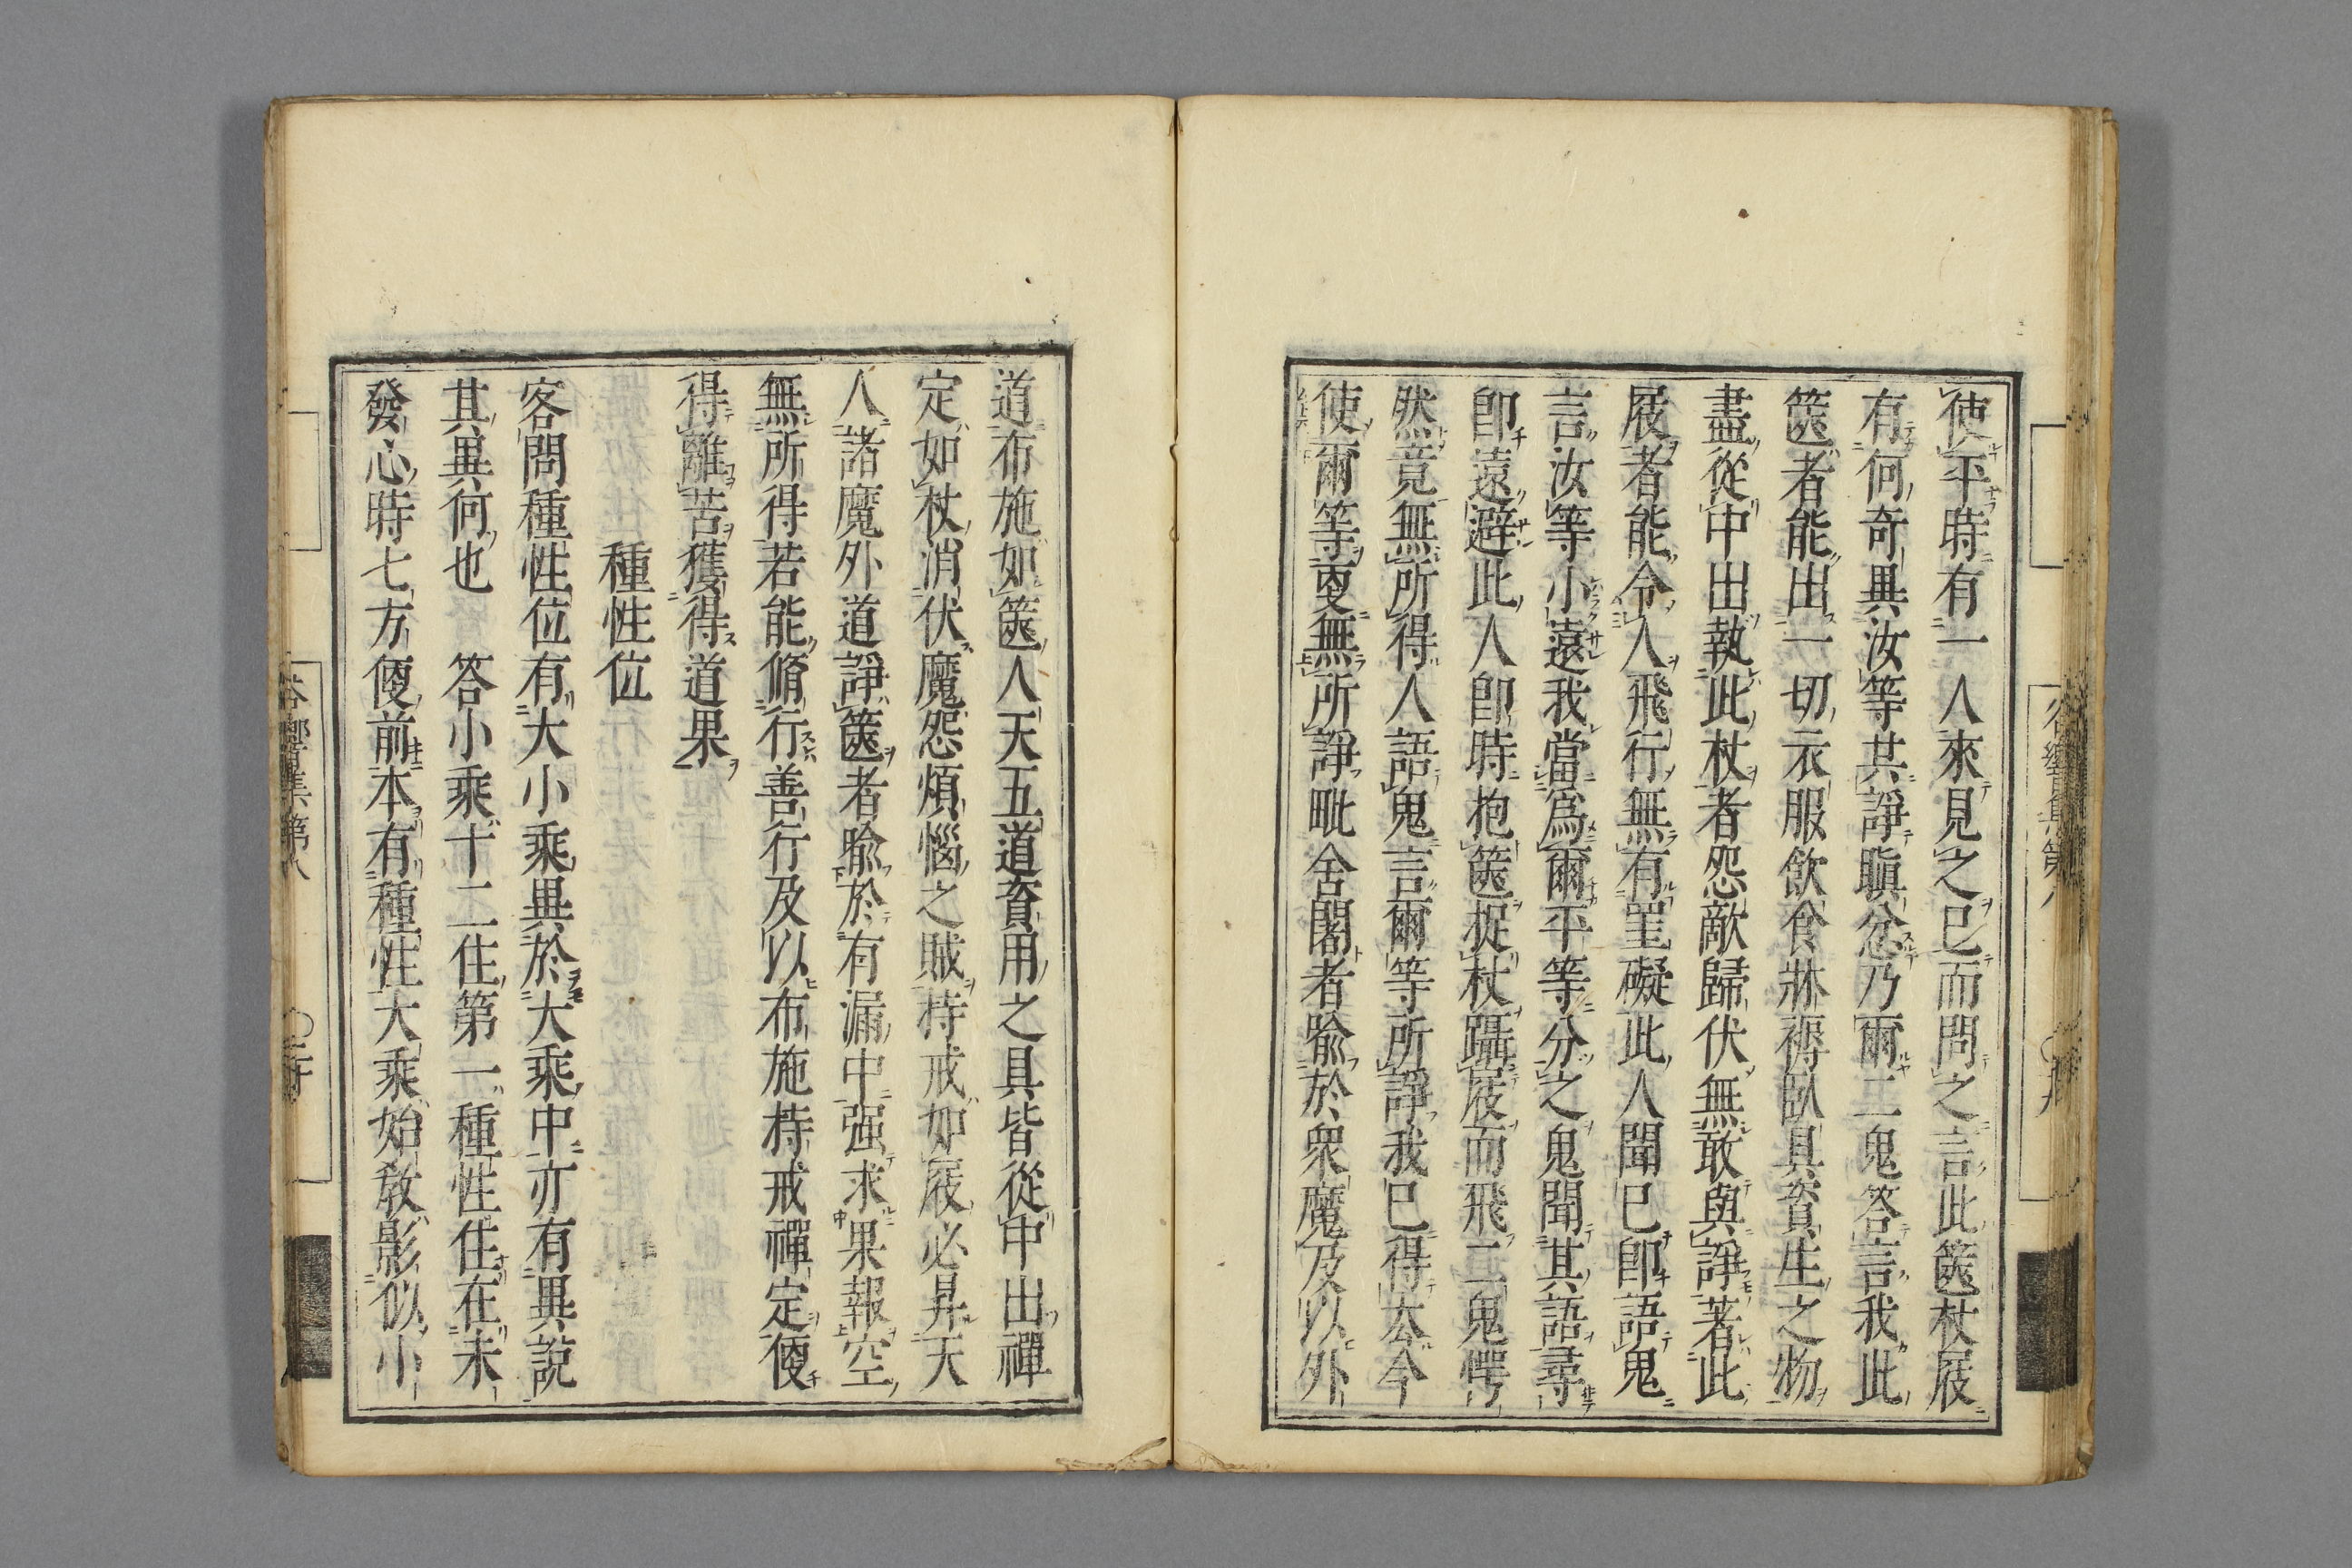 使平時有一人來見之已而問之言此篋杖屐
有何奇異汝等共諍瞋忿乃爾二鬼答言我此
篋者能出一切衣服飲食牀褥臥具資生之物
盡從中出執此杖者怨敵歸伏無敢與諍著此
屐者能令人飛行無有罣礙此人聞已卽語鬼
言汝等小遠我當爲爾平等分之鬼聞其語尋
卽遠避此人卽時抱篋捉杖躡屐而飛二鬼愕
然竟無所得人語鬼言爾等所諍我已得去今
使爾等更無所諍毗舍闍者喩於衆魔及以外
道布施如篋人天五道資用之具皆從中出禪
定如杖消伏魔怨煩惱之賊持戒如屐必昇天
人諸魔外道諍篋者喩於有漏中强求果報空
無所得若能脩行善行及以布施持戒禪定便
得離苦獲得道果
種性位
客問種性位有大小乘異於大乘中亦有異說
其異何也　答小乘十二住第一種性住在未
發心時七方便前本有種性大乘始敎影似小
谷響集第八
〇二十